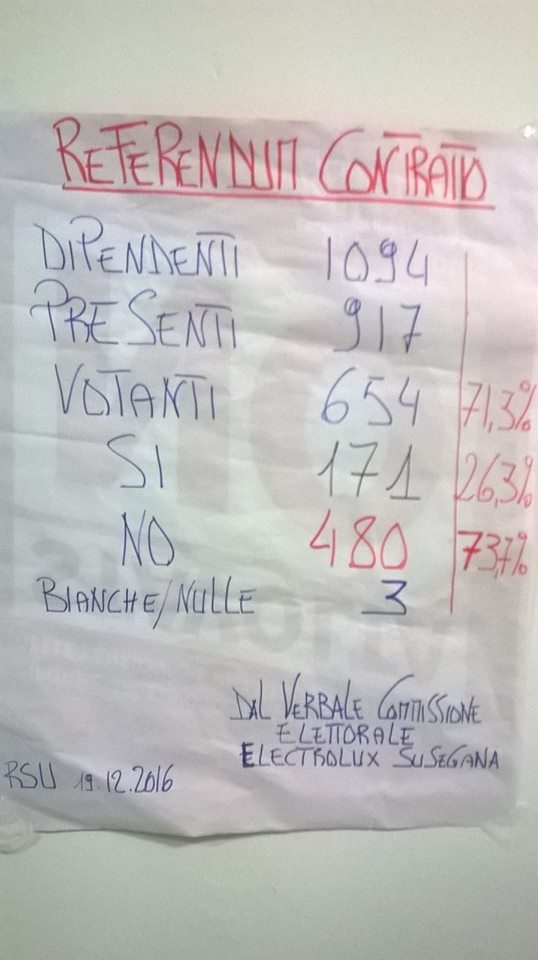 REFERENDUM CONTRATTO
DIPENDENTI 1094
PRESENTI 917
VOTANTI 654 71,3%
SI 171 26,3%
NO 480 73,7%
BIANCHE/NULLE 3
DAL VERBALE COMMISSIONE
ELETTORALE
ELECTROLUX SUSEGANA
RSU 19.12.2016